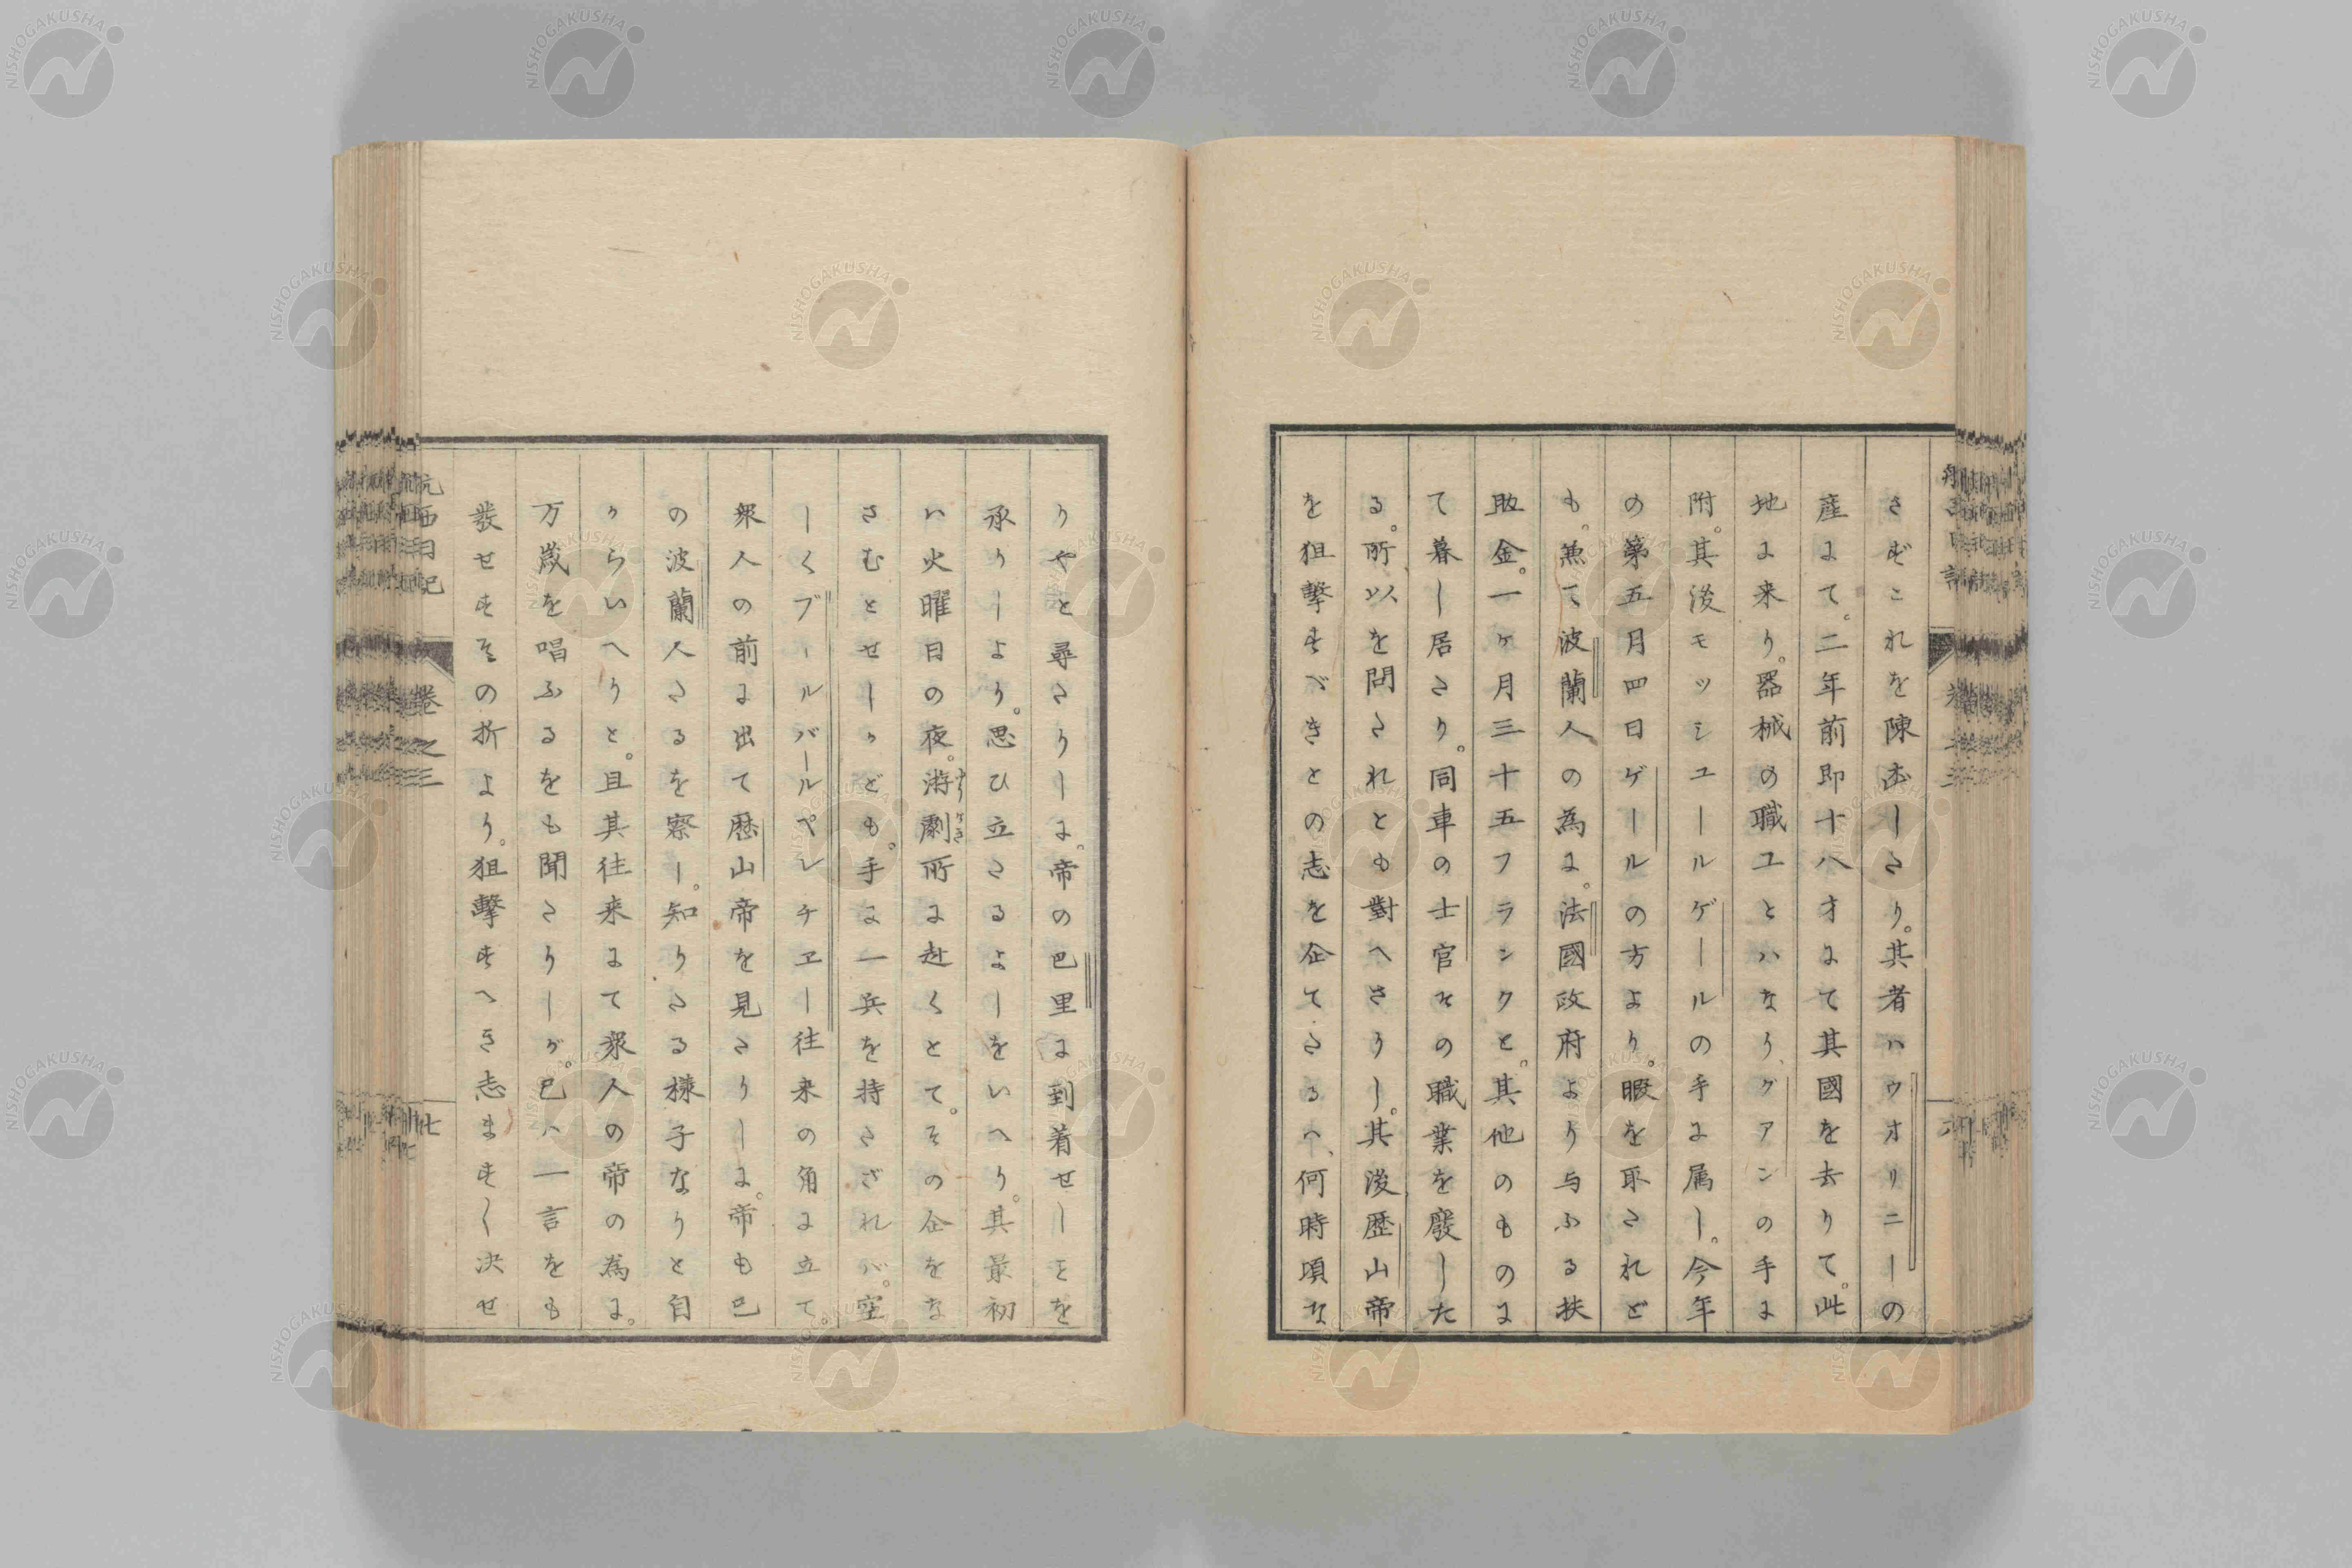 さずこれを陳述しさり。其者ハウオリニーの
産にて。二年前即十八才にて其國を去りて。此
地に来り。器械の職工とハなり、クアンの手に
附。其後モッシユールゲールの手に属し。今年
の第五月四日ゲールの方より。暇を取されど
も。無て波蘭人の為に。法國政府より与ふる扶
助金。一ヶ月三十五フランクと。其他のものに
て暮し居さり。同車の士官その職業を廢した
る。所以を問されとも對へさりし。其後歴山帝
を狙撃すべきとの志を企てさるハ、何時頃な
りやと尋さりしに。帝の巴里に到着せしを
承りしより。思ひ立さるよしをいへり。其最初
ハ火曜日の夜。游劇所に赴くとて。その企をな
さむとせしかども。手に一兵を持さざれバ。空
しくブールバールペレチヱー往来の角に立て。
衆人の前に出て歴山帝を見さりしに。帝も已
の波蘭人さるを察し。知りさる様子なりと自
からいへりと。且其往来にて衆人の帝の為に。
万歳を唱ふるをも聞さりしが。已ハ一言をも
發せすその折より。狙撃すへき志ますく決せ
航西日記 巻之三 七
NISHOGAKUSHA